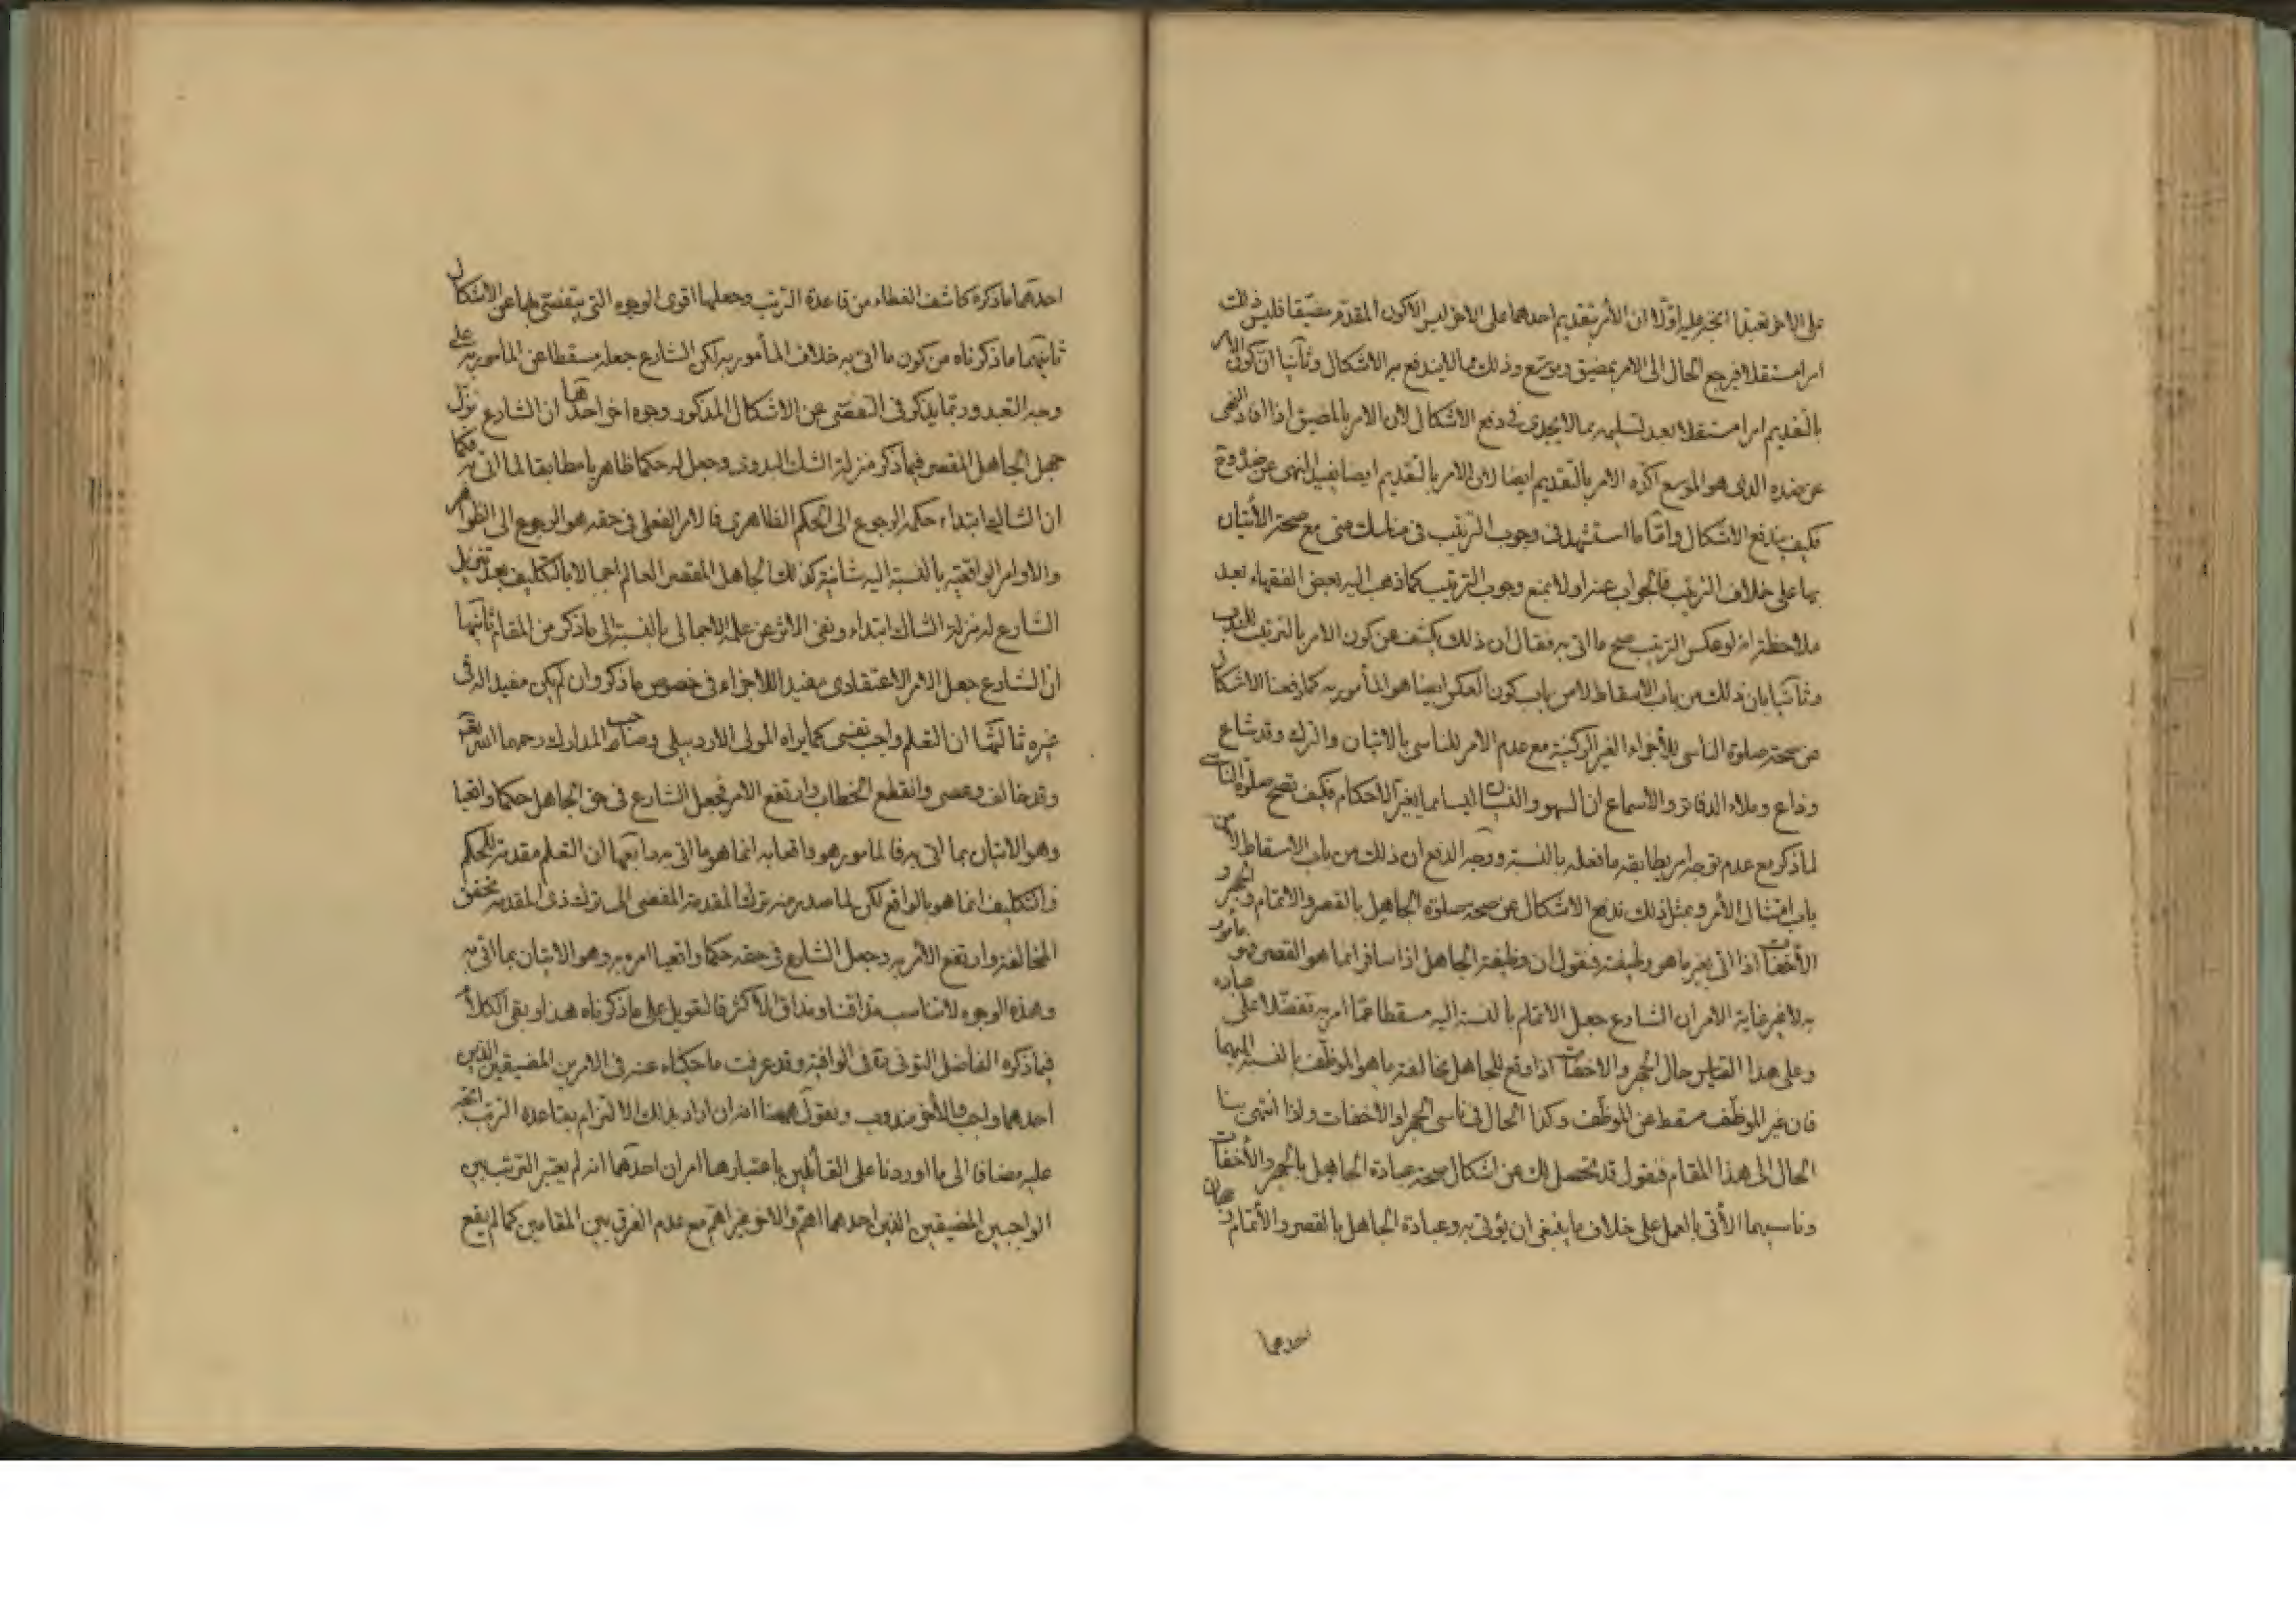 على الاخر تعبدا اتجه عليه اولا ان الأمر بتقديم احدهما على الاخر ليس الا كون المقدم مضيقا فليس ذلك
امرا مستقلا فيرجع الحال الى الامر بمضيق وموسع وذلك مما لا يندفع به الاشكال وثانيا ان كون الامر
بالتقديم امرا مستقلا بعد تسليمه مما لا يجدى فى دفع الاشكال لان الامر بالمضيق اذا افاد النهى
عن ضده الذى هو الموسع اكده الامر بالتقديم ايضا لان الامر بالتقديم ايضا يفيد النهى عن ضده وح
فكيف يندفع الاشكال واما ما استشهد فى وجوب الترتيب فى مناسك منى مع صحة الأتيان
بها على خلاف الترتيب فالجواب عنه اولا بمنع وجوب الترتيب كما ذهب اليه بعض الفقهاء بعد
ملاحظة انه لو عكس الترتيب صح ما اتى به فقال ان ذلك يكشف عن كون الامر بالترتيب للندب
وثانيا بان ذلك من باب الاسقاط لا من باب كون العكس ايضا هو المأمور به كما دفعنا الاشكال
عن صحة صلوة الناسى للأجزاء الغير الركنية مع عدم الامر للناسى بالاتيان والترك وقد شاع
وذاع وملاء الدفاتر والأسماع ان السهو والنسيان ليسا مما يغير الاحكام فكيف تصح صلوة الناسى
لما ذكر مع عدم توجه امر يطابقه ما فعله بالنسبة ووجه الدفع ان ذلك من باب الاسقاط لا من
باب امتثال الأمر وبمثل ذلك ندفع الاشكال عن صحة صلوة الجاهل بالقصر والاتمام وبالجهر و
الأخفات اذا اتى بغير ما هو وظيفته فنقول ان وظيفة الجاهل اذا سافر انما هو القصر وهو مأمور
به لا غير غاية الامر ان الشارع جعل الاتمام بالنسبة اليه مسقطا عما امر به تفضلا على عباده
وعلى هذا القياس حال الجهر والاخفات اذا وقع للجاهل مخالفة ما هو الموظف بالنسبة اليهما
فان غير الموظف مسقط عن الموظف وكذا الحال فى ناسى الجهر او الأخفات واذا انتهى بنا
الحال الى هذا المقام فنقول قد تحصل لك من اشكال صحة عبادة الجاهل بالجهر والأخفات
وناسيهما الأتى بالعمل على خلاف ما ينبغى ان يؤتى به وعبادة الجاهل بالقصر والأتمام وجهان
احدهما
احدهما ما ذكره كاشف الغطاء من قاعدة الترتيب وجعلها اقوى الوجوه التى يتفصى بها عن الاشكال
ثانيهما ما ذكرناه من كون ما اتى به خلاف المأمور به لكن الشارع جعله مسقطا عن المأمور به على
وجه التعبد وربما يذكر فى التفصى عن الاشكال المذكور وجوه اخر احدها ان الشارع نزل
جهل الجاهل المقصر فيما ذكر منزلة الشك البدوى وجعل له حكما ظاهريا مطابقا لما اتى به فكما
ان الشاك ابتداء حكمه الرجوع الى الحكم الظاهرى فالامر الفعلى فى حقه هو الرجوع الى الظواهر
والاوامر الواقعية بالنسبة اليه شانية كذلك الجاهل المقصر العالم اجمالا بالتكليف بعد تنزيل
الشارع له منزلة الشاك ابتداء ونفى الاثر عن علمه الاجمالى بالنسبة الى ما ذكر من المقام ثانيها
ان الشارع جعل الامر الاعتقادى مفيدا للاجزاء فى خصوص ما ذكر وان لم يكن مفيدا له فى
غيره ثالثها ان التعلم واجب نفسى كما يراه المولى الاردبيلى وصاحب المدارك رحمهما الله تعالى
وقد خالف وعصى وانقطع الخطاب وارتفع الامر فجعل الشارع فى حق الجاهل حكما واقعيا
وهو الاتيان بما اتى به فالمامور به واقعا انما هو ما اتى به رابعها ان التعلم مقدمة للحكم
والتكليف انما هو بالواقع لكن لما صدر منه ترك المقدمة المفضى الى ترك ذى المقدمة تحقق
المخالفة وارتفع الأمر به وجعل الشارع فى حقه حكما واقعيا امره به وهو الاتيان بما اتى به
وهذه الوجوه لا تناسب مذاقنا ومذاق الأكثر فالتعويل على ما ذكرناه هذا وبقى الكلام
فيما ذكره الفاضل التونى ره فى الوافية وقد عرفت ما حكيناه عنه فى الامرين المضيقين الذين
احدهما واجب والأخر مندوب ونقول ههنا انه ان اراد بذلك الالتزام بقاعدة الترتب اتجه
عليه مضافا الى ما اوردنا على القائلين باعتبارها امران احدهما انه لم يعتبر الترتب بين
الواجبين المضيقين الذين احدهما اهم والاخر غير اهم مع عدم الفرق بين المقامين كما لم يقع